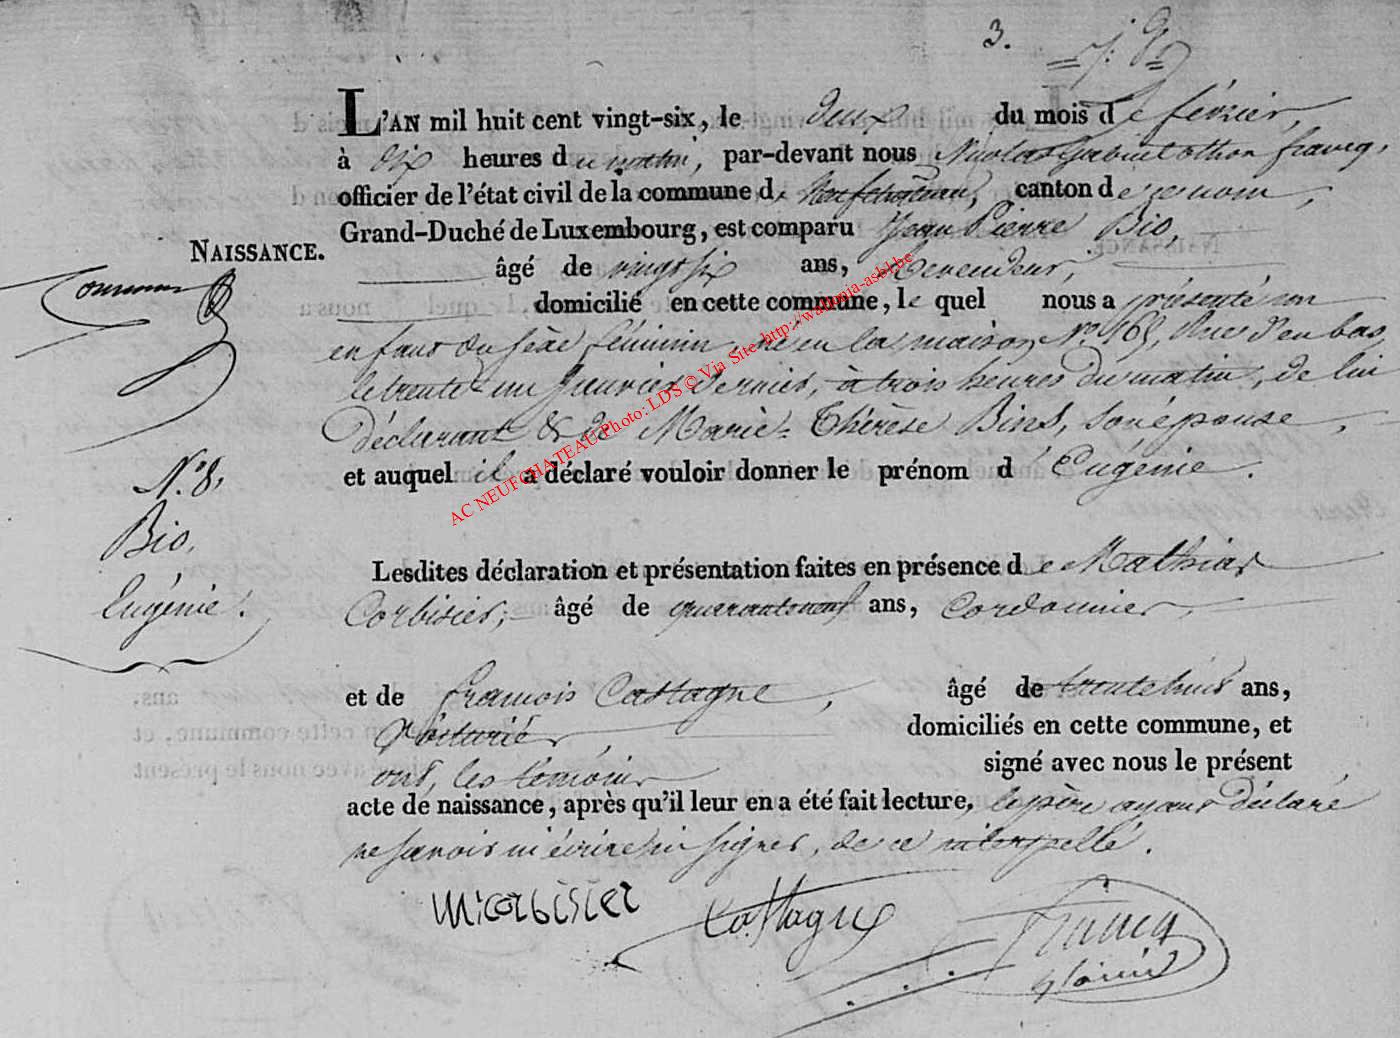 3.
L'AN mil huit cent vingt-six, le deux du mois de février,
à dix heures du matin, par-devant nous Nicolas Gabriel othon francq,
officier de l'état civil de la commune de Neufchateau, canton de ce nom,
Grand-Duché de Luxembourg, est comparu Jean Pierre Bio,
NAISSANCE.
âgé de vingt six ans, Revendeur,
domicilié en cette commune, le quel nous a présenté un
enfant du sexe féminin, né en la maison N.º 165, Rue d'en bas,
le trente-un Janvier dernier, à trois heures du matin, de lui
déclarant & de Marie-Thérèse Bins, son épouse,
et auquel il a déclaré vouloir donner le prénom d'Eugénie.
AC NEUFCHATEAU Photo: LDS © Via Site: http://wallonia-asbl.be
N.º 8.
Bio,
Eugénie.
Lesdites déclaration et présentation faites en présence de Mathias
Corbisier, âgé de quarante neuf ans, Cordonnier,
et de françois Castagne, âgé de trente huit ans,
Voiturié, domiciliés en cette commune, et
ont, les témoins signé avec nous le présent
acte de naissance, après qu'il leur en a été fait lecture, le père ayant déclaré
ne savoir ni écrire ni signer, de ce interpellé.
M:corbisier Castagne Francq